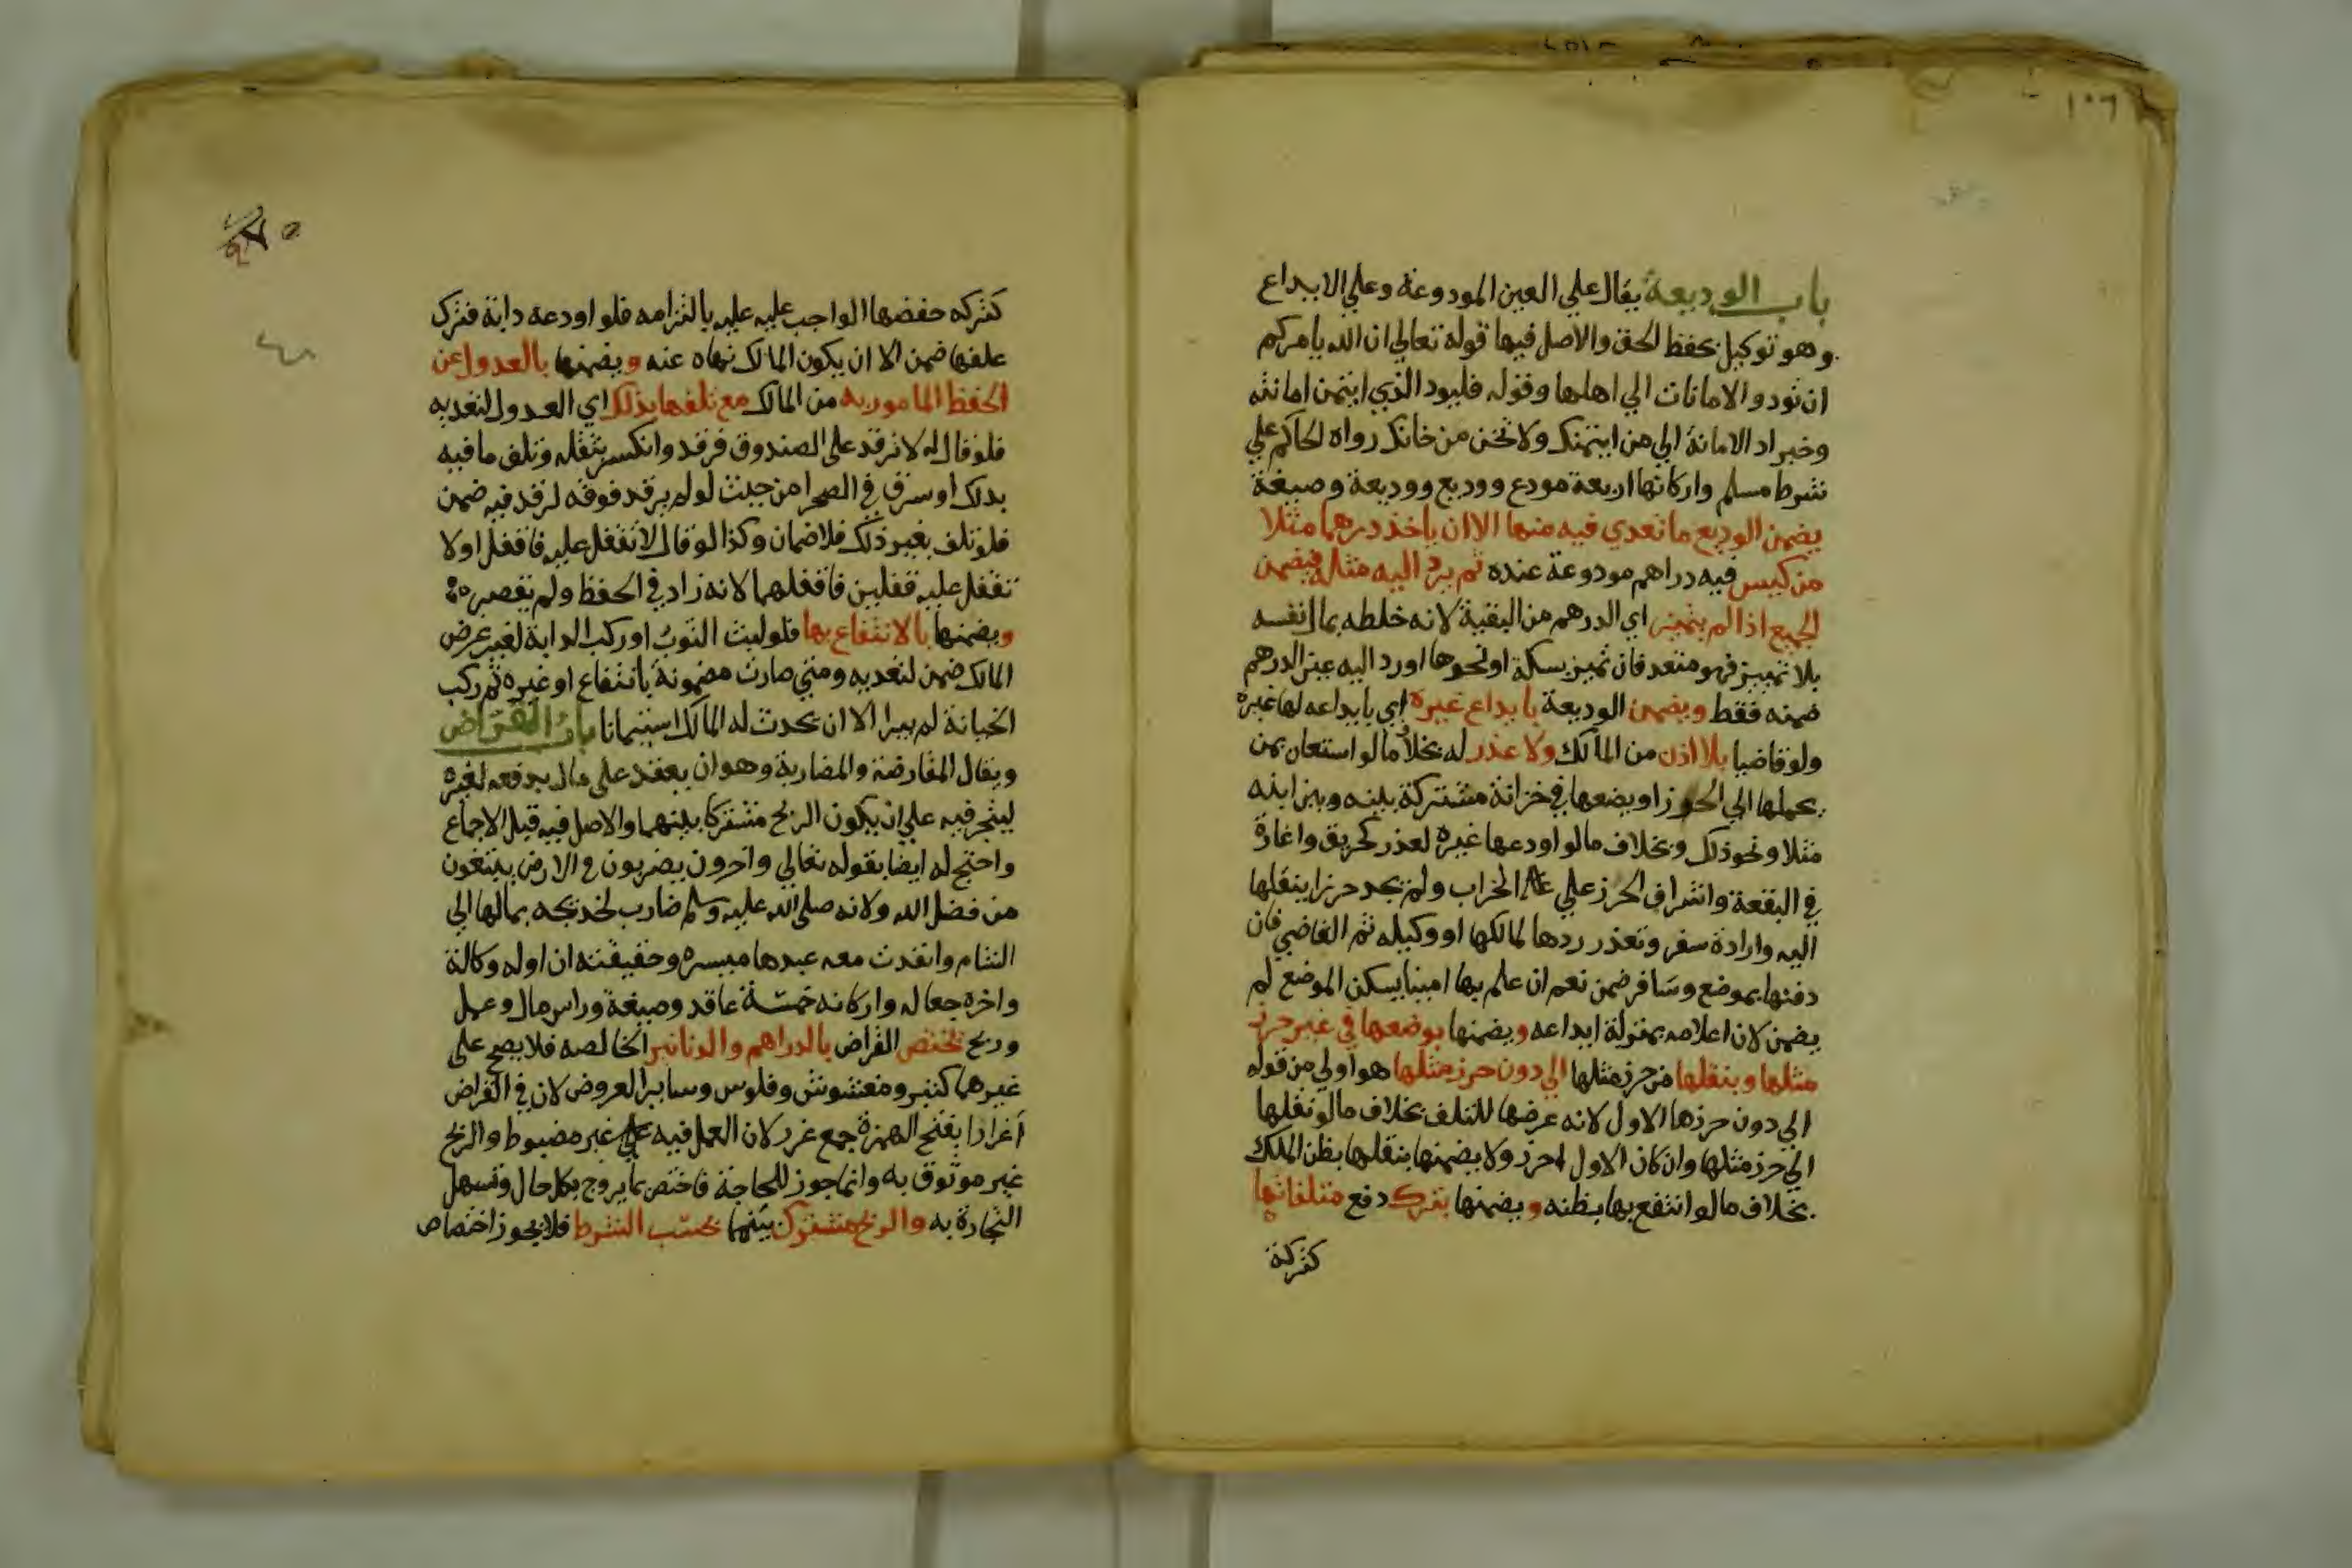 ١٠٦
باب الوديعة يقال علي العين المودوعة وعلي الايداع
وهو توكيل بحفظ لحق والاصل فيها قوله تعالي ان الله يامركم
ان تودوا الامانات الي اهلها وقوله فليود الذي ايتمن امانته
وخبر اد الامانة الي من ايتمنك ولا تخن من خانك رواه الحاكم علي
شرط مسلم واركانها اربعة مودع ووديع ووديعة وصيغة
يضمن الوديع ما تعدي فيه منها الا ان ياخذ درهما مثلا
من كيس فيه دراهم مودوعة عنده ثم يرد اليه مثله فيضمن
الجميع اذا لم يتميز اي الدرهم من البقية لانه خلطه بمال نفسه
بلا تمييز فهو متعد فان تميز بسكة او نحوها او رد اليه عين الدرهم
ضمنه فقط ويضمن الوديعة بايداع غيره اي بايداعه لها غيره
ولو قاضيا بلا اذن من المالك ولا عذر له بخلاف ما لو استعان بمن
يحملها الي الحرز او يضعها في خزانة مشتركة بينه وبين ابنه
مثلا ونحو ذلك وبخلاف ما لو اودعها غيره لعذر كحريق واغارة
في البقعة واشراف الحرز علي الخراب ولم يجد حرزا ينقلها
اليه وارادة سفر وتعذر ردها لمالكها او وكيله ثم القاضي فان
دفنها بموضع وسافر ضمن نعم ان علم بها امينا يسكن الموضع لم
يضمن لان اعلامه بمنزلة ايداعه ويضمنها بوضعها في غير حرز
مثلها وبنقلها من حرز مثلها الي دون حرز مثلها هو اولي من قوله
الي دون حرزها الاول لانه عرضها للتلف بخلاف ما لو نقلها
الي حرز مثلها وان كان الاول احرز ولا يضمنها بنقلها بظن الملك
بخلاف ما لو انتفع بها بظنه ويضمنها بترك دفع متلفاتها
كتركة
كتركه حفضها الواجب عليه عليه بالتزامه فلو اودعه دابة فترك
علفها ضمن الا ان يكون المالك نهاه عنه ويضمنها بالعدول عن
الحفظ المامور به من المالك مع تلفها بذلك اي العدول لتعديه
فلو قال له لا ترقد على الصندوق فرقد وانكسر بثقله وتلف ما فيه
بذلك او سرق في الصحرا من حيث لو لم يرقد فوقه لرقد فيه ضمن
فلو تلف بغير ذلك فلا ضمان وكذا لو قال لا تقفل عليه فاقفل او لا
تقفل عليه قفلين فاقفلهما لانه زاد في الحفظ ولم يقصره
ويضمنها بالانتفاع بها فلو لبث الثوب او ركب الدابة لغير غرض
المالك ضمن لتعديه ومتي صارت مضمونة بانتفاع او غيره ثم ركب
الخيانة لم يبرا الا ان يحدث له المالك استيمانا باب القراض
ويقال المقارضة والمضاربة وهو ان يعقد على مال يدفعه لغيره
ليتجر فيه علي ان يكون الربح مشتركا بينهما والاصل فيه قبل الاجماع
واحتج له ايضا بقوله تعالي واخرون يضربون في الارض يبتغون
من فضل الله ولانه صلى الله عليه وسلم ضارب لخديجه بمالها الي
الشام وانفدت معه عبدها ميسره وحقيقته ان اوله وكالة
واخره جعاله واركانه خمسة عاقد وصيغة وراس مال وعمل
وربح تختص القراض بالدراهم والدنانير الخالصه فلا يصح على
غيرهما كتبر ومغشوش وفلوس وساير العروض لان في القراض
اغرارا بفتح الهمزة جمع غرر لان العمل فيه غير مضبوط والربح
غير موثوق به وانما جوز للحاجة فاختص بما يروج بكل حال وتسهل
التجارة به والربح مشترك بينهما بحسب الشرط فلا يجوز اختصاص